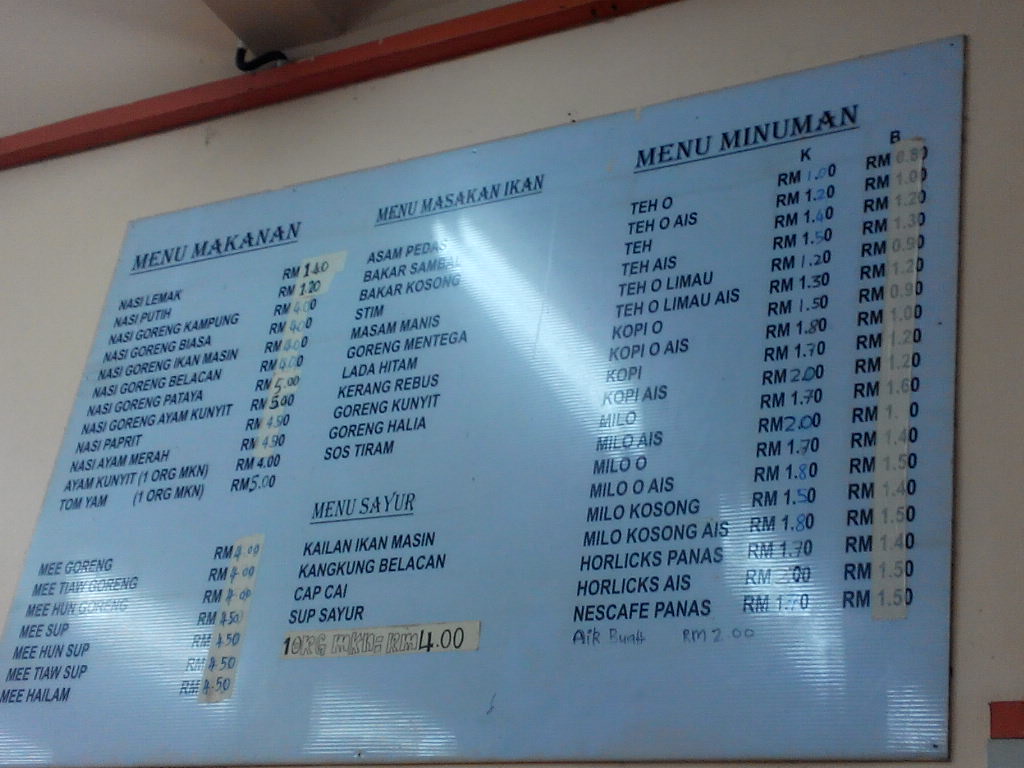 MENU MAKANAN
NASI LEMAK RM 1.40
NASI PUTIH RM 1.20
NASI GORENG KAMPUNG RM 4.00
NASI GORENG BIASA RM 4.00
NASI GORENG IKAN MASIN RM 4.00
NASI GORENG BELACAN RM 4.00
NASI GORENG PATAYA RM 5.00
NASI GORENG AYAM KUNYIT RM 5.00
NASI PAPRIT RM
NASI AYAM MERAH RM
AYAM KUNYIT (1 ORG MKN) RM 4.00
TOM YAM (1 ORG MKN) RM 5.00
MEE GORENG RM 4.00
MEE TIAW GORENG RM 4.00
MEE HUN GORENG RM 4.00
MEE SUP RM 4.50
MEE HUN SUP RM 4.50
MEE TIAW SUP RM 4.50
MEE HAILAM RM 4.50
MENU MASAKAN IKAN
ASAM PEDAS
BAKAR SAMBAL
BAKAR KOSONG
STIM
MASAM MANIS
GORENG MENTEGA
LADA HITAM
KERANG REBUS
GORENG KUNYIT
GORENG HALIA
SOS TIRAM
MENU SAYUR
KAILAN IKAN MASIN
KANGKUNG BELACAN
CAP CAI
SUP SAYUR
1 ORG MKN = RM 4.00
MENU MINUMAN
K B
TEH O RM 1.00 RM 0.80
TEH O AIS RM 1.20 RM 1.00
TEH RM 1.40 RM 1.20
TEH AIS RM 1.50 RM 1.30
TEH O LIMAU RM 1.20 RM 0.90
TEH O LIMAU AIS RM 1.30 RM 1.20
KOPI O RM 1.50 RM 0.90
KOPI O AIS RM 1.80 RM 1.00
KOPI RM 1.70 RM 1.20
KOPI AIS RM 2.00 RM 1.20
MILO RM 1.70 RM 1.60
MILO AIS RM 2.00 RM
MILO O RM 1.70 RM 1.40
MILO O AIS RM 1.80 RM 1.50
MILO KOSONG RM 1.50 RM 1.40
MILO KOSONG AIS RM 1.80 RM 1.50
HORLICKS PANAS RM 1.70 RM 1.40
HORLICKS AIS RM 2.00 RM 1.50
NESCAFE PANAS RM 1.70 RM 1.50
Aik Buah RM 2.00